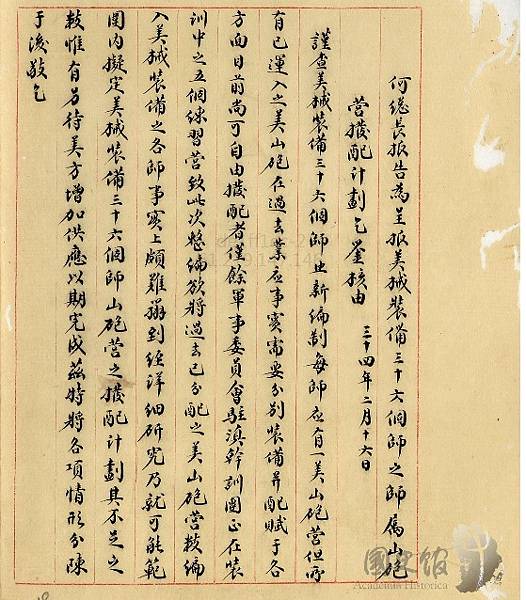 何總長报告為呈报美械裝備三十六個師之師属山砲
营撥配計劃乞鉴核由
三十四年二月十六日
謹查美械裝備三十六個師之新编制每師应有一美山砲营但所
有已運入之美山砲在過去業应事实需要分别裝備并配賦于各
方面目前尚可自由撥配者僅餘軍事委員會駐滇幹訓團正在裝
訓中之五個練習营致此次整编欲將過去已分配之美山砲营抽编
入美械裝備之各師事实上頗難辦到經詳细研究乃就可能範
围内擬定美械裝備三十六個師山砲营之撥配計劃其不足之
数惟有另待美方增加供應以期完成茲特將各項情形分陳
于後敬乞
國史館
Academia Historica